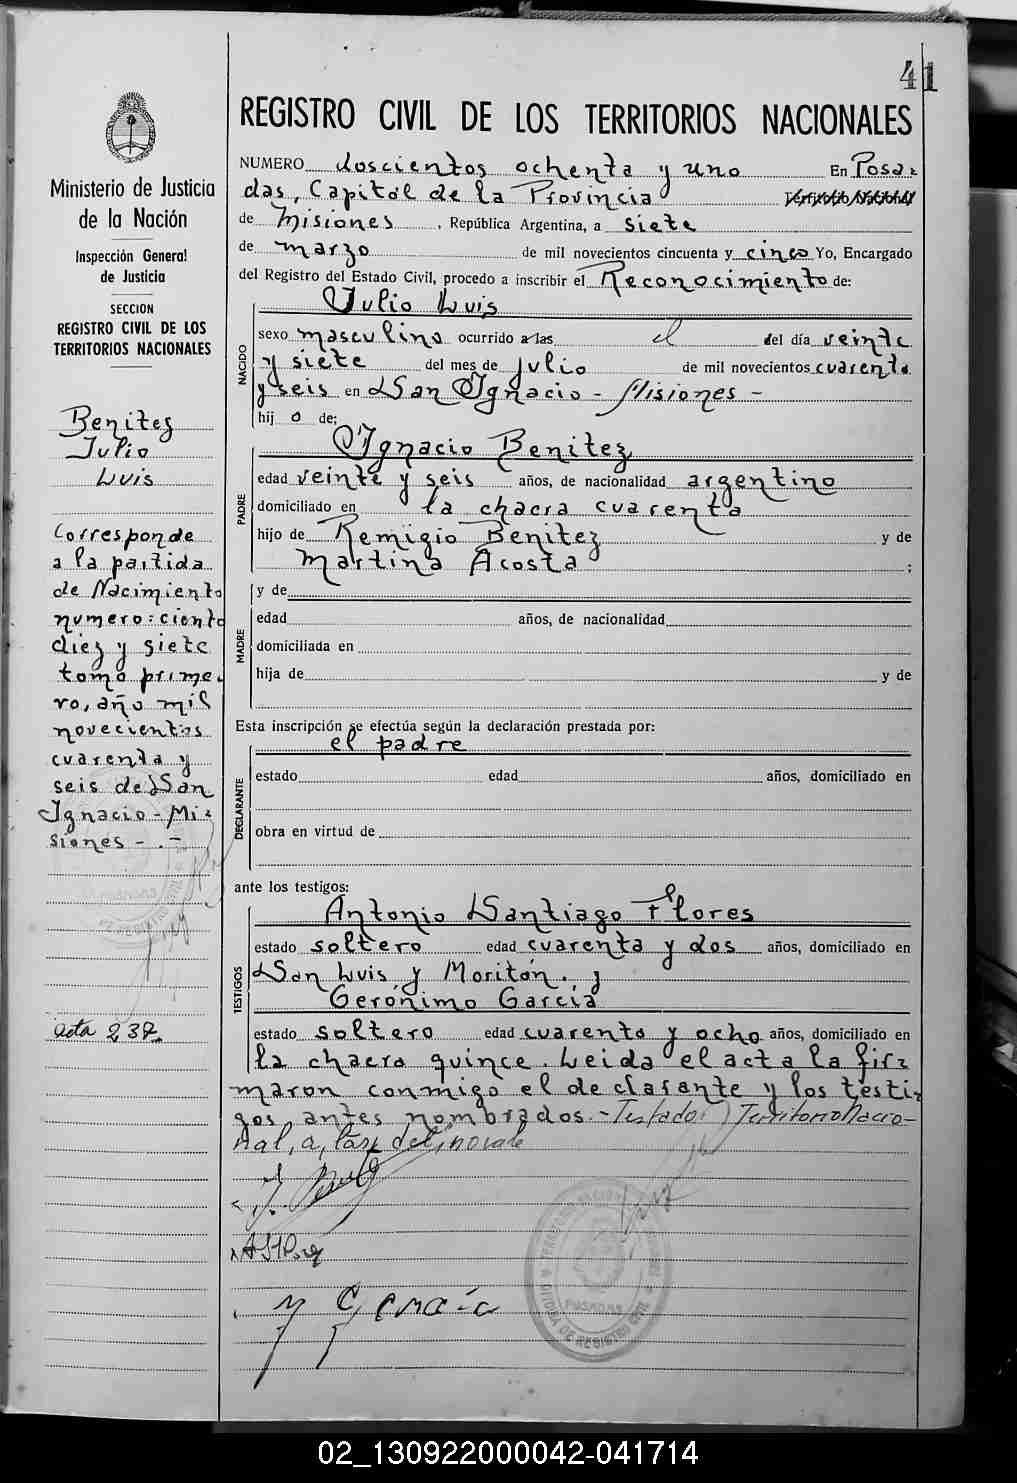 41
REGISTRO CIVIL DE LOS TERRITORIOS NACIONALES
Ministerio de Justicia
de la Nación
Inspección General
de Justicia
SECCION
REGISTRO CIVIL DE LOS
TERRITORIOS NACIONALES
Benitez
Julio
Luis
Corresponde
a la partida
de Nacimiento
numero: ciento
diez y siete
tomo prime-
ro, año mil
novecientos
cuarenta y
seis de San
Ignacio - Mi-
siones - . -
acta 237.
NUMERO doscientos ochenta y uno En Posa-
das, Capital de la Provincia Territorio Nacional
de Misiones, República Argentina, a siete
de marzo de mil novecientos cincuenta y cinco Yo, Encargado
del Registro del Estado Civil, procedo a inscribir el Reconocimiento de:
Julio Luis
NACIDO
sexo masculino ocurrido a las el del día veinte
y siete del mes de julio de mil novecientos cuarenta
y seis en San Ignacio - Misiones -
hijo de:
PADRE
Ignacio Benitez
edad veinte y seis años, de nacionalidad argentino
domiciliado en la chacra cuarenta
hijo de Remigio Benitez y de
Martina Acosta ;
MADRE
y de
edad años, de nacionalidad
domiciliada en
hija de y de
Esta inscripción se efectúa según la declaración prestada por:
el padre
DECLARANTE
estado edad años, domiciliado en
obra en virtud de
ante los testigos:
TESTIGOS
Antonio Santiago Flores
estado soltero edad cuarenta y dos años, domiciliado en
San Luis y Moritán. y
Gerónimo Garcia
estado soltero edad cuarenta y ocho años, domiciliado en
la chacra quince. Leida el acta la fir-
maron conmigo el declarante y los testi-
gos antes nombrados. - Testado: Territorio Nacio-
nal, a, las, del, no vale
POSADAS
02_130922000042-041714